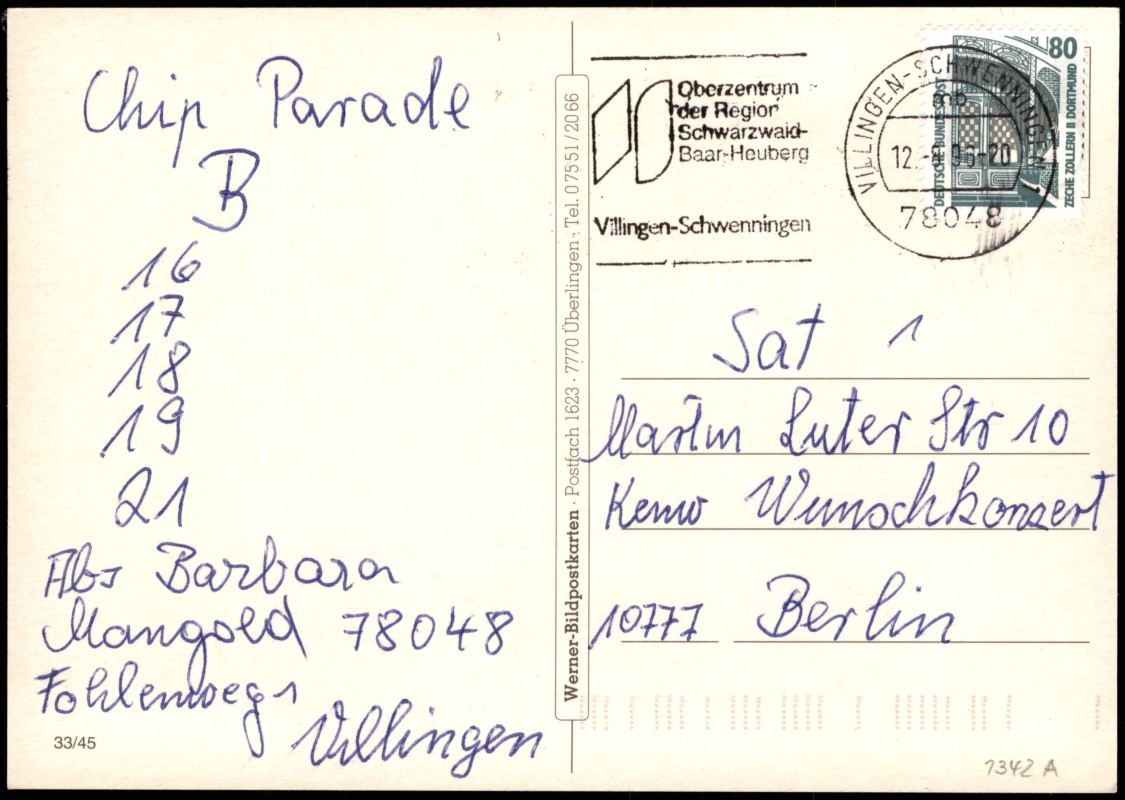 Chip Parade
B
16
17
18
19
21
Abs Barbara
Mangold 78048
Fohlenweg 1
Villingen
33/45
Werner-Bildpostkarten · Postfach 1623 · 7770 Überlingen · Tel. 07551/2066
Oberzentrum
der Region
Schwarzwald-
Baar-Heuberg
Villingen-Schwenningen
VILLINGEN-SCHWENNINGEN 1
mb
12.-9.96-20
78048
80
DEUTSCHE BUNDESPOST
ZECHE ZOLLERN II DORTMUND
Sat 1
Martin Luter Str 10
Kenw Wunschkonzert
10777 Berlin
1342 A